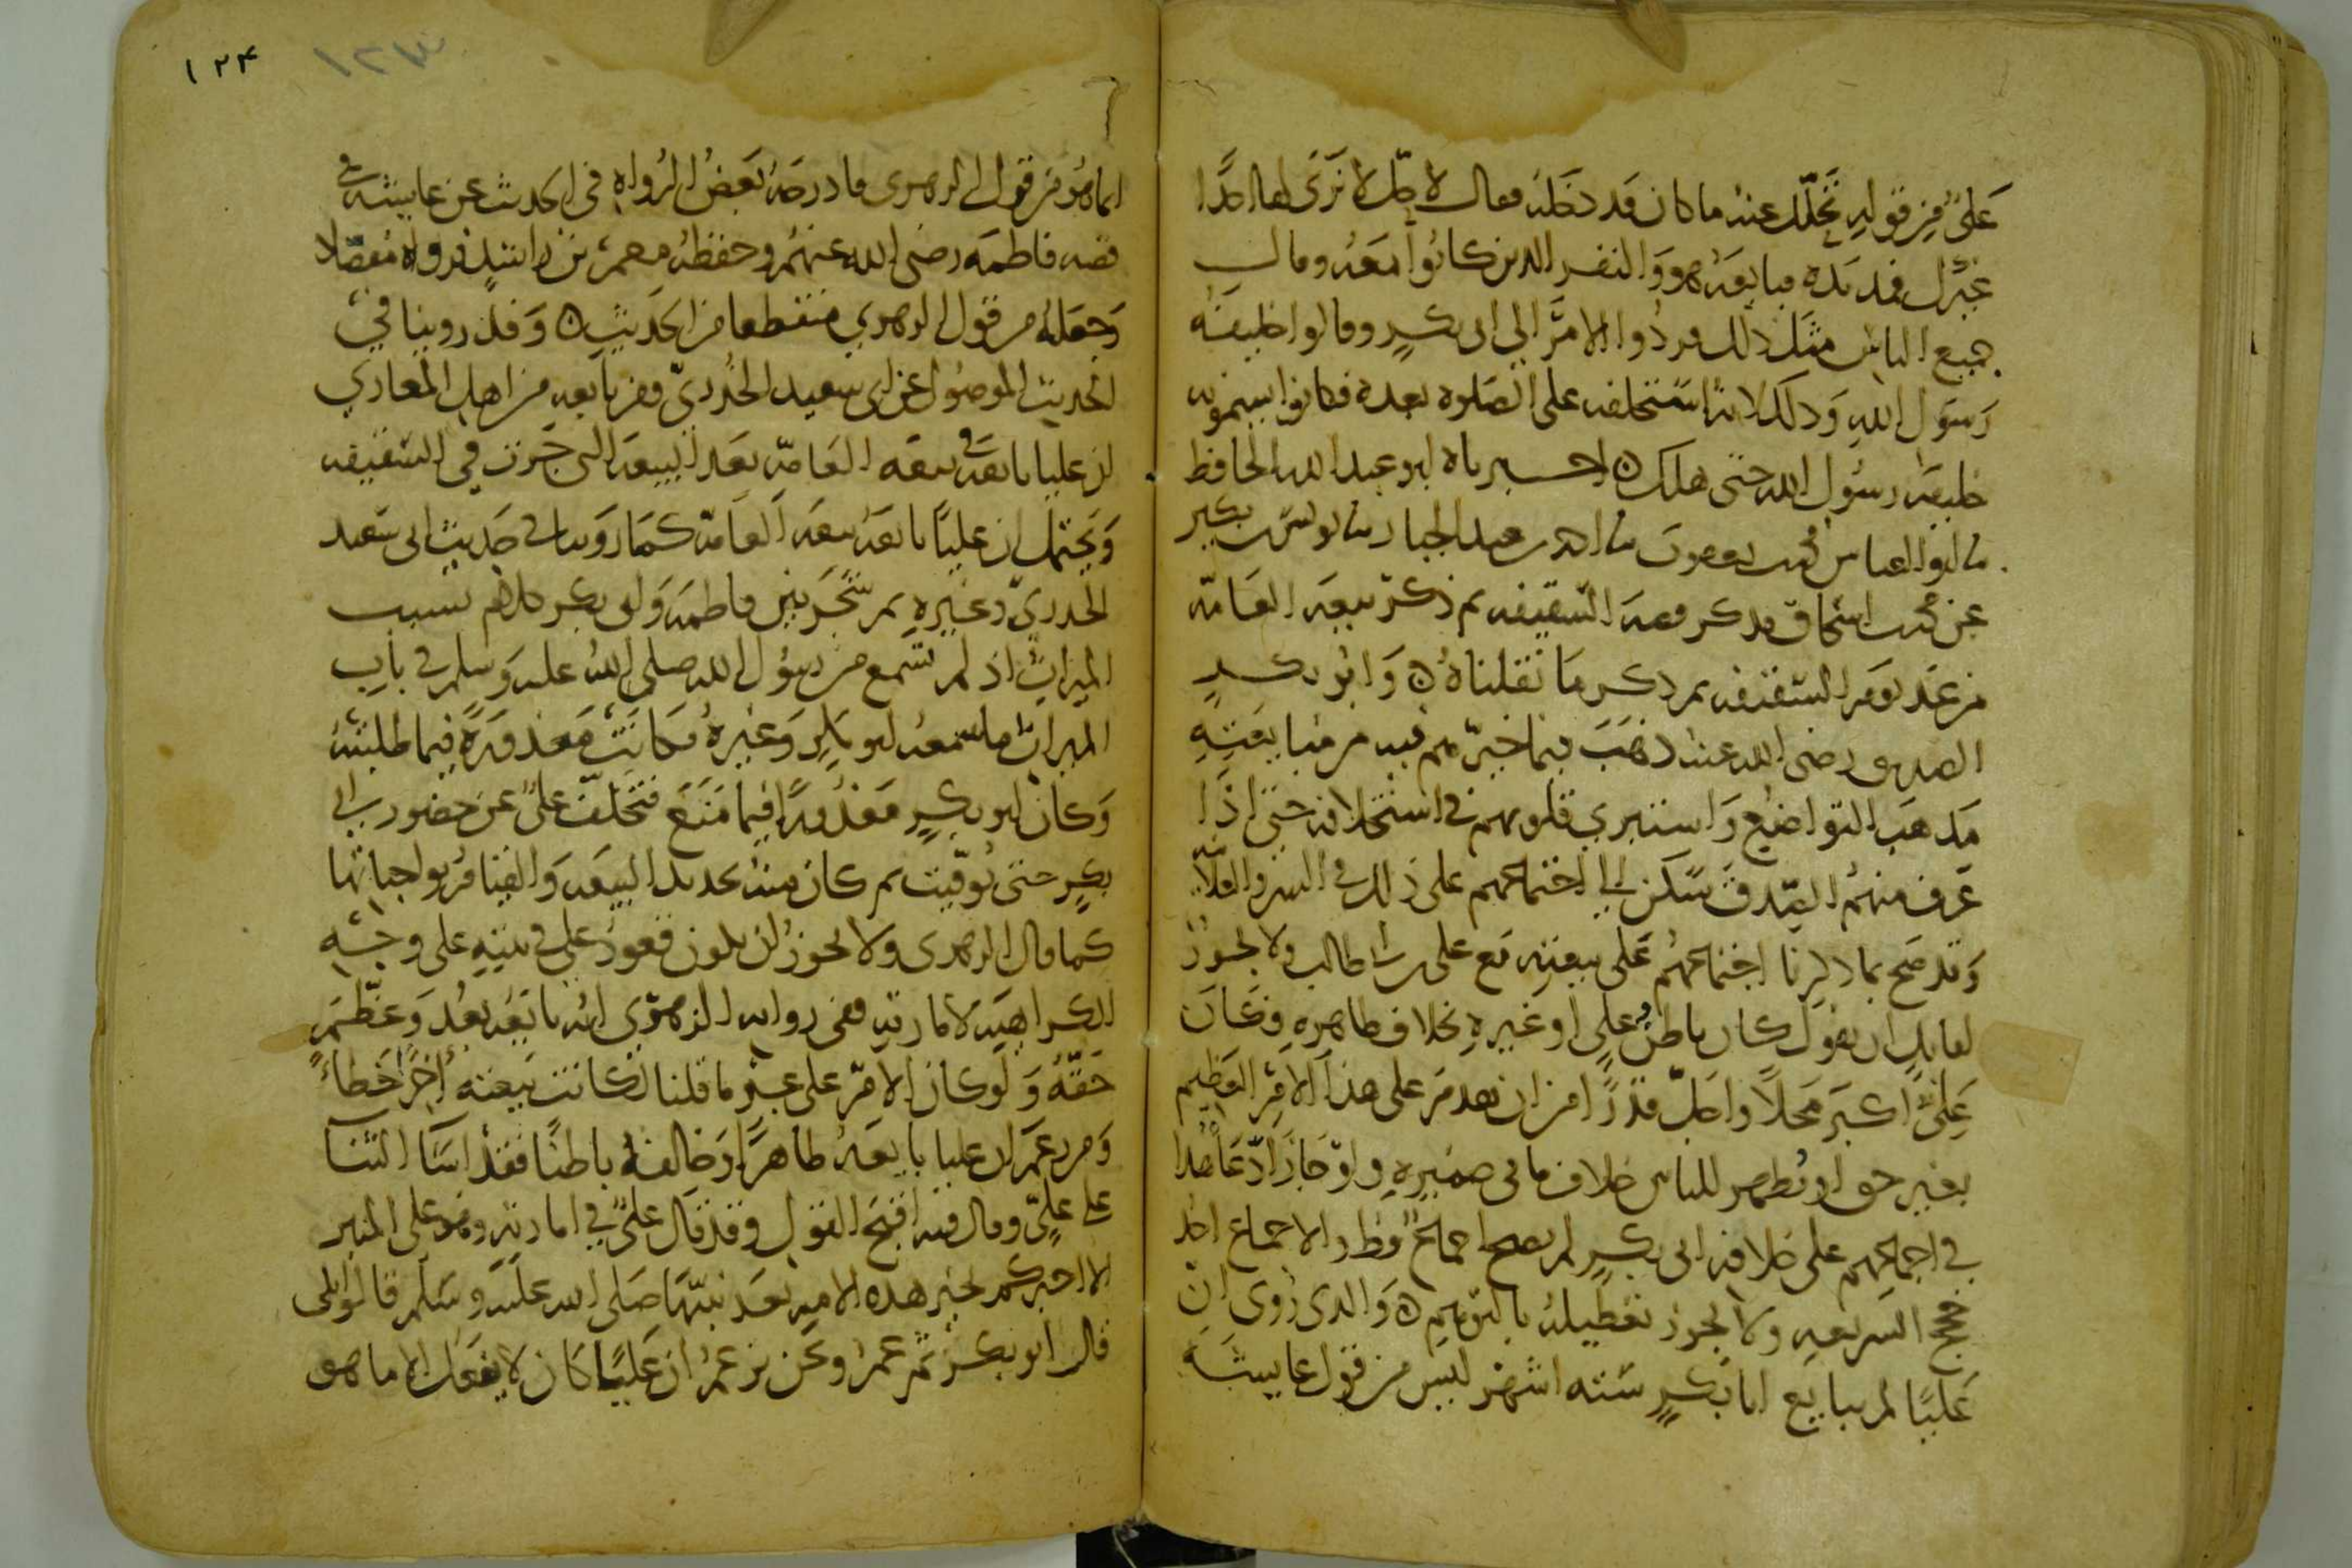 على من قوله تحلل عنه ما كان قد دخله فقال لا حل لا نرى لها احدا
غيرك فمد يده فبايعه هو والنفر الذين كانوا معه وقال
جميع الناس مثل ذلك فردوا الامر الى ابى بكر وقالوا خليفة
رسول الله وذلك لانه استخلفه على الصلوة بعده فكانوا يسمونه
خليفة رسول الله حتى هلك ۞ اخبرناه ابو عبد الله الحافظ
نا ابو العباس محمد بن يعقوب نا احمد بن عبد الجبار نا يونس بن بكير
عن محمد بن اسحاق فذكر قصة السقيفه ثم ذكر بيعة العامة
من غد يوم السقيفه ثم ذكر ما نقلناه ۞ وابو بكر
الصديق رضى الله عنه ذهب فيما خيرهم فيه من مبايعته
مذهب التواضع واستبرى قلوبهم فى استخلافه حتى اذا
عرف منهم الصدق سكن الى اجتماعهم على ذلك فى السر والعلانية
وقد صح بما ذكرنا اجتماعهم على بيعته مع على بن ابى طالب ولا يجوز
لقايل ان يقول كان باطن على او غيره بخلاف ظاهره فكان
على اكبر محلا واجل قدرا من ان يقدم على هذا الامر العظيم
بغير حق او يظهر للناس خلاف ما فى ضميره ولو جاز ادعا هذا
فى اجماعهم على خلافة ابى بكر لم يصح اجماع قط والاجماع احد
حجج الشريعه ولا يجوز تعطيله بالتوهم ۞ والذى روى ان
عليا لم يبايع ابا بكر ستة اشهر ليس من قول عايشة
١٢٤ ١٢٣
انما هو من قول الزهرى فادرجه بعض الرواه فى الحديث عن عايشة فى
قصه فاطمه رضى الله عنهم وحفظه معمر بن راشد فرواه مفصلا
وجعله من قول الزهري منقطعا من الحديث ۞ وقد روينا في
الحديث الموصول عن ابى سعيد الخدري ومن تابعه من اهل المغازي
ان عليا بايعه فى بيعه العامة بعد البيعه التى جرت في السقيفه
ويحتمل ان عليا بايعه بيعه العامة كما روينا فى حديث ابى سعيد
الخدري وغيره ثم شجر بين فاطمه وابى بكر كلام بسبب
الميراث اذ لم تسمع من رسول الله صلى الله عليه وسلم فى باب
الميراث ما سمعه ابو بكر وغيره فكانت معذورة فيما طلبته
وكان ابو بكر معذورا فيما منع فتخلف على عن حضور ابى
بكر حتى توفيت ثم كان منه تجديد البيعه والقيام بواجباتها
كما قال الزهرى ولا يجوز ان يكون قعود على فى بيته على وجه
الكراهية لامارته ففى رواية الزهري انه بايعه بعد وعظم
حقه ولو كان الامر على غير ما قلنا لكانت بيعته اخرا خطأ
ومن زعم ان عليا بايعه ظاهرا وخالفه باطنا فقد اسا الثنا
على على وقال فيه اقبح القول وقد قال على في امارته وهو على المنبر
الا اخبركم بخير هذه الامه بعد نبيها صلى الله عليه وسلم قالوا بلى
قال ابو بكر ثم عمر ونحن نزعم ان عليا كان لا يفعل الا ما هو